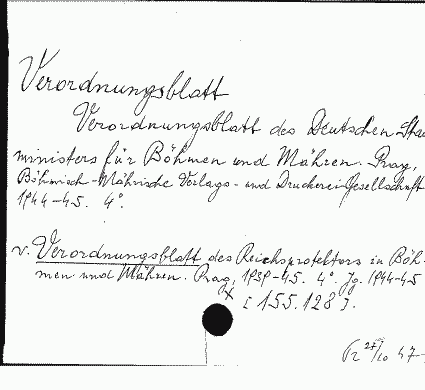 Verordnungsblatt
Verordnungsblatt des Deutschen Staa
ministers für Böhmen und Mähren. Prag,
Böhmisch-Mährische Verlags- und Druckerei-Gesellschaft
1944-45. 4°.
v. Verordnungsblatt des Reichsprotektors in Böh-
men und Mähren. Prag, 1939-45. 4°. Jg. 1944-45
x [155.128].
27/10 47